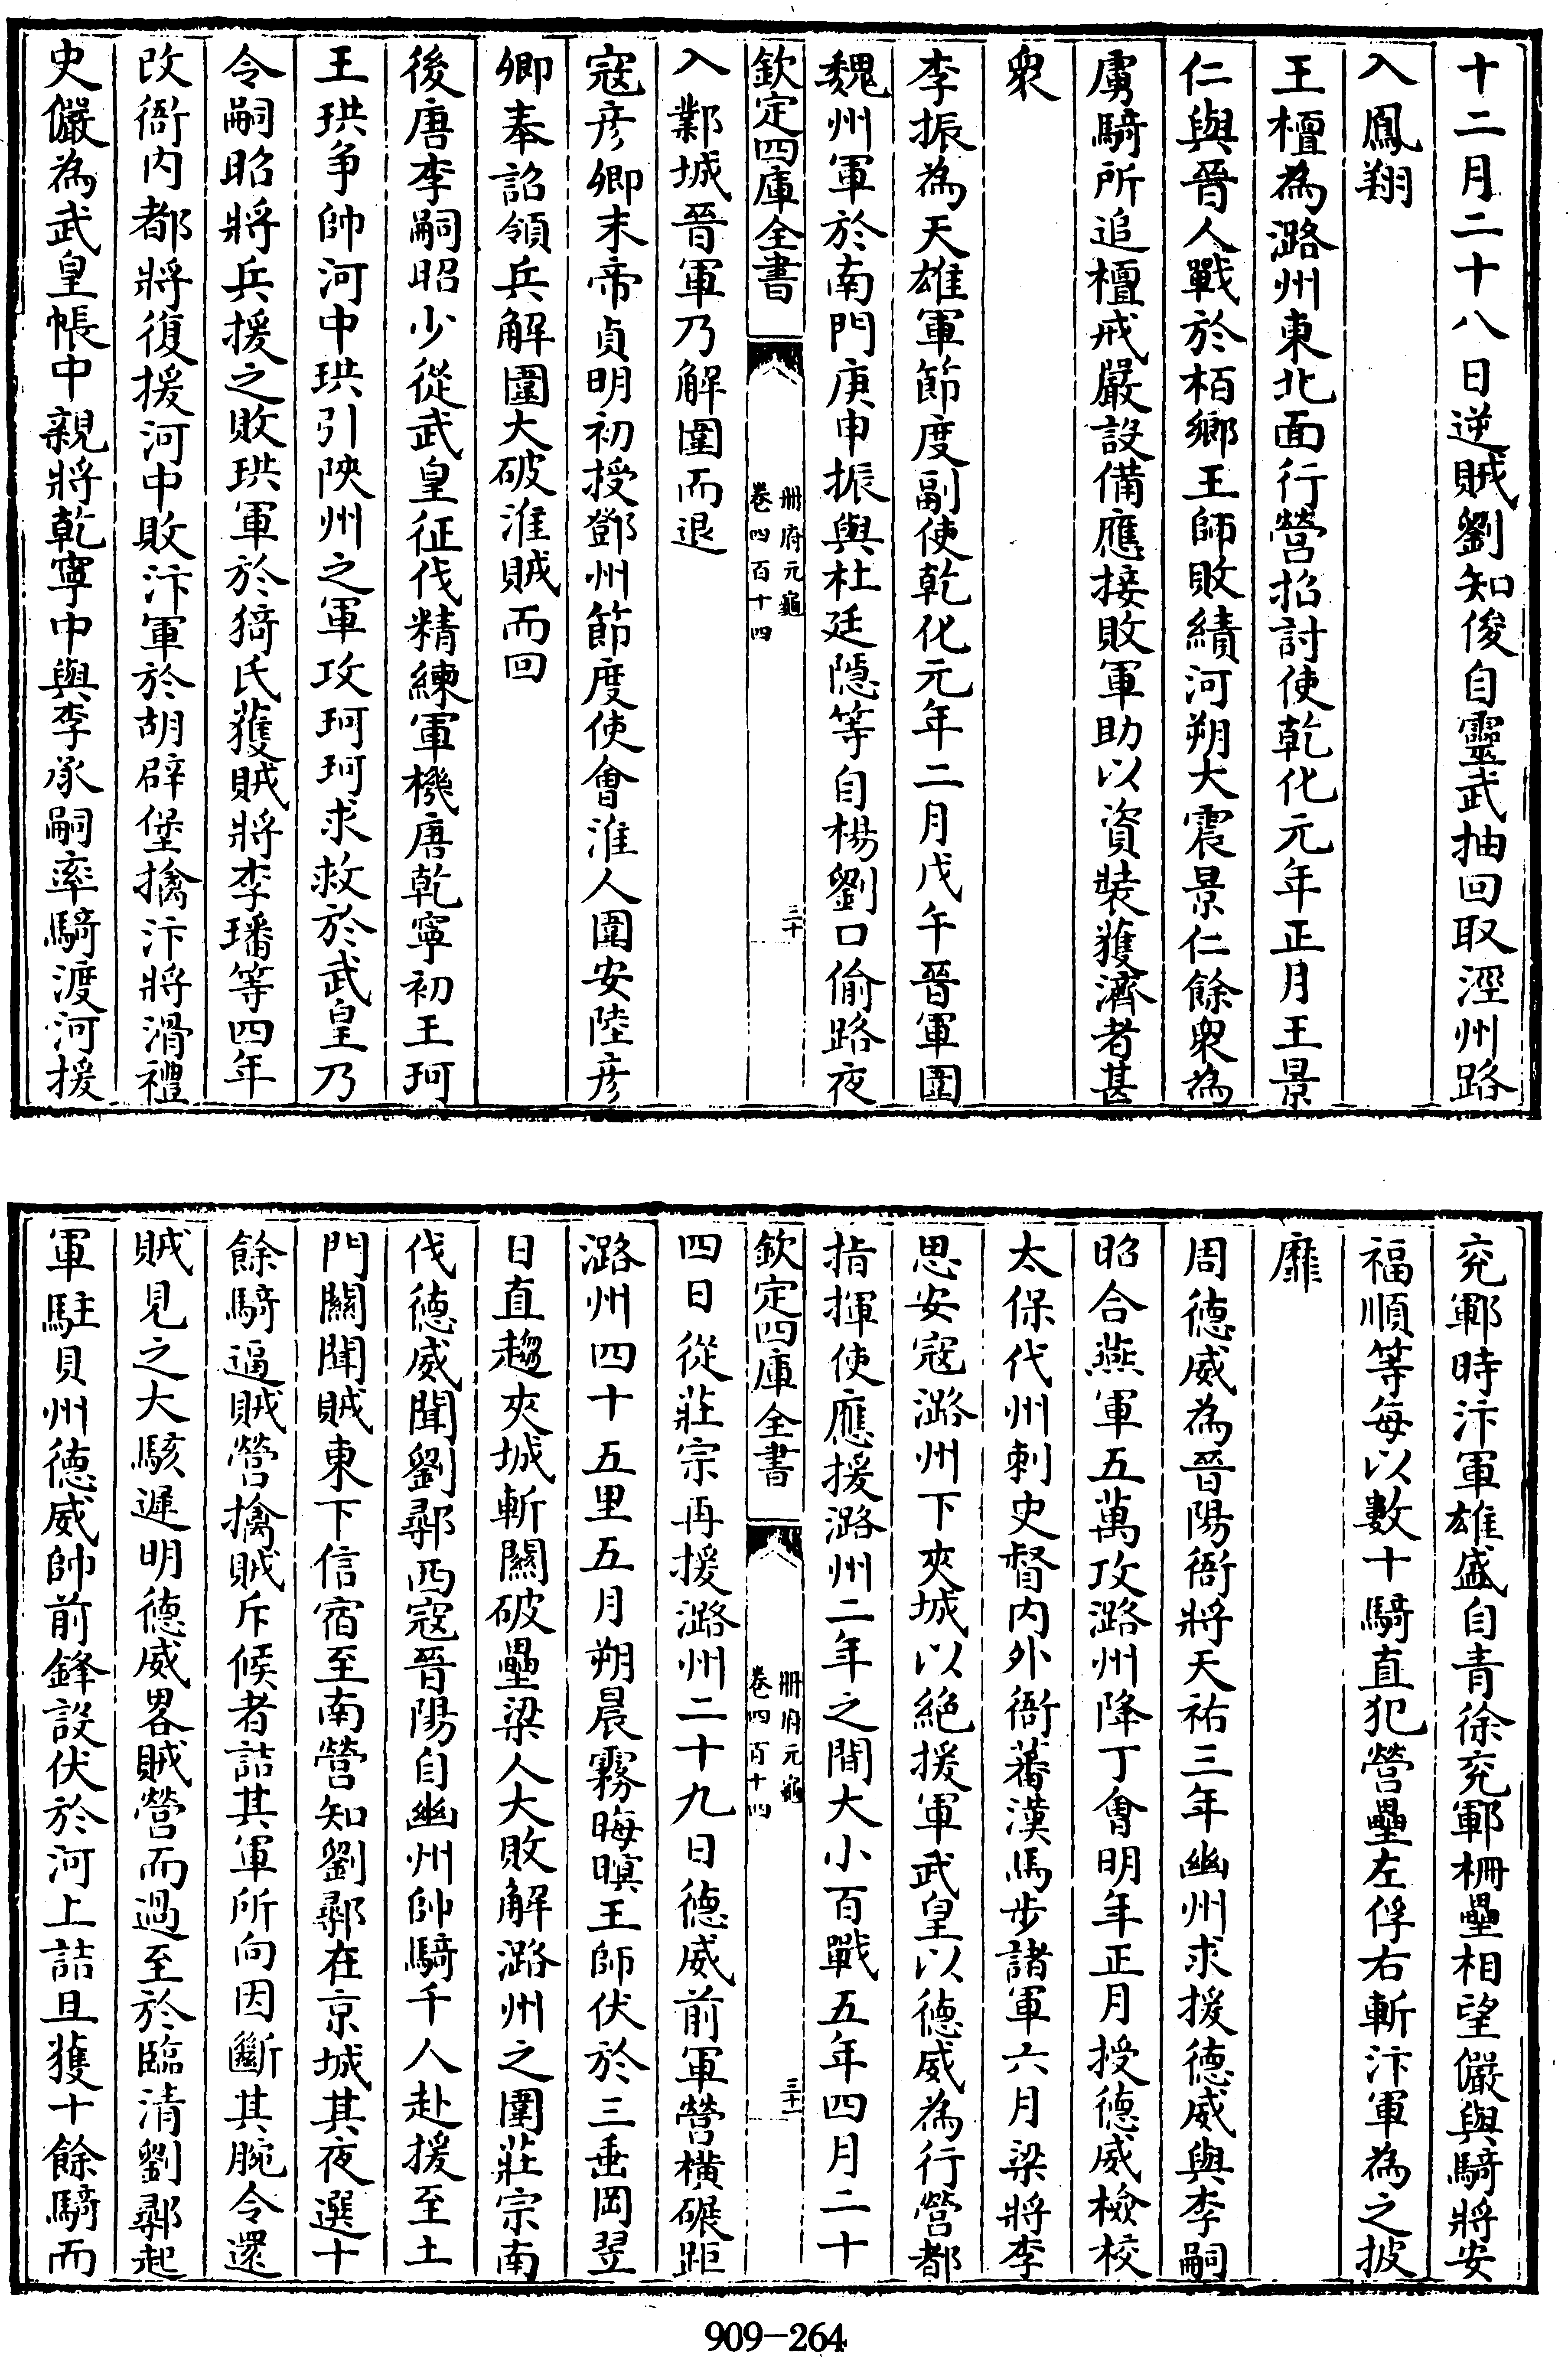 十二月二十八日逆賊劉知俊自靈武抽回取涇州路
入鳳翔
王檀為潞州東北面行營招討使乾化元年正月王景
仁與晉人戰於栢鄉王師敗績河朔大震景仁餘衆為
虜騎所追檀戒嚴設備應接敗軍助以資裝獲濟者甚
衆
李振為天雄軍節度副使乾化元年二月戊午晉軍圍
魏州軍於南門庚申振與杜廷隱等自楊劉口偷路夜
欽定四庫全書
冊府元龜
卷四百十四
三十
入鄴城晉軍乃解圍而退
寇彦卿末帝貞明初授鄧州節度使會淮人圍安陸彦
卿奉詔領兵解圍大破淮賊而回
後唐李嗣昭少從武皇征伐精練軍機唐乾寧初王珂
王珙争帥河中珙引陜州之軍攻珂珂求救於武皇乃
令嗣昭將兵援之敗珙軍於猗氏獲賊將李璠等四年
改衙内都將復援河中敗汴軍於胡壁堡擒汴將滑禮
史儼為武皇帳中親將乾寧中與李承嗣率騎渡河援
兖鄆時汴軍雄盛自青徐兖鄆柵壘相望儼與騎將安
福順等每以數十騎直犯營壘左俘右斬汴軍為之披
靡
周德威為晉陽衙將天祐三年幽州求援德威與李嗣
昭合燕軍五萬攻潞州降丁會明年正月授德威檢校
太保代州刺史督内外衙蕃漢馬步諸軍六月梁將李
思安寇潞州下夾城以絶援軍武皇以德威為行營都
指揮使應援潞州二年之間大小百戰五年四月二十
欽定四庫全書
冊府元龜
卷四百十四
三十一
四日從莊宗再援潞州二十九日德威前軍營横碾距
潞州四十五里五月朔晨霧晦暝王師伏於三垂岡翌
日直趨夾城斬關破壘梁人大敗解潞州之圍莊宗南
伐德威聞劉鄩西寇晉陽自幽州帥騎千人赴援至土
門關聞賊東下信宿至南營知劉鄩在京城其夜選十
餘騎逼賊營擒賊斥候者詰其軍所向因斷其腕令還
賊見之大駭遲明德威畧賊營而過至於臨清劉鄩起
軍駐貝州德威帥前鋒設伏於河上詰旦獲十餘騎而
909-264